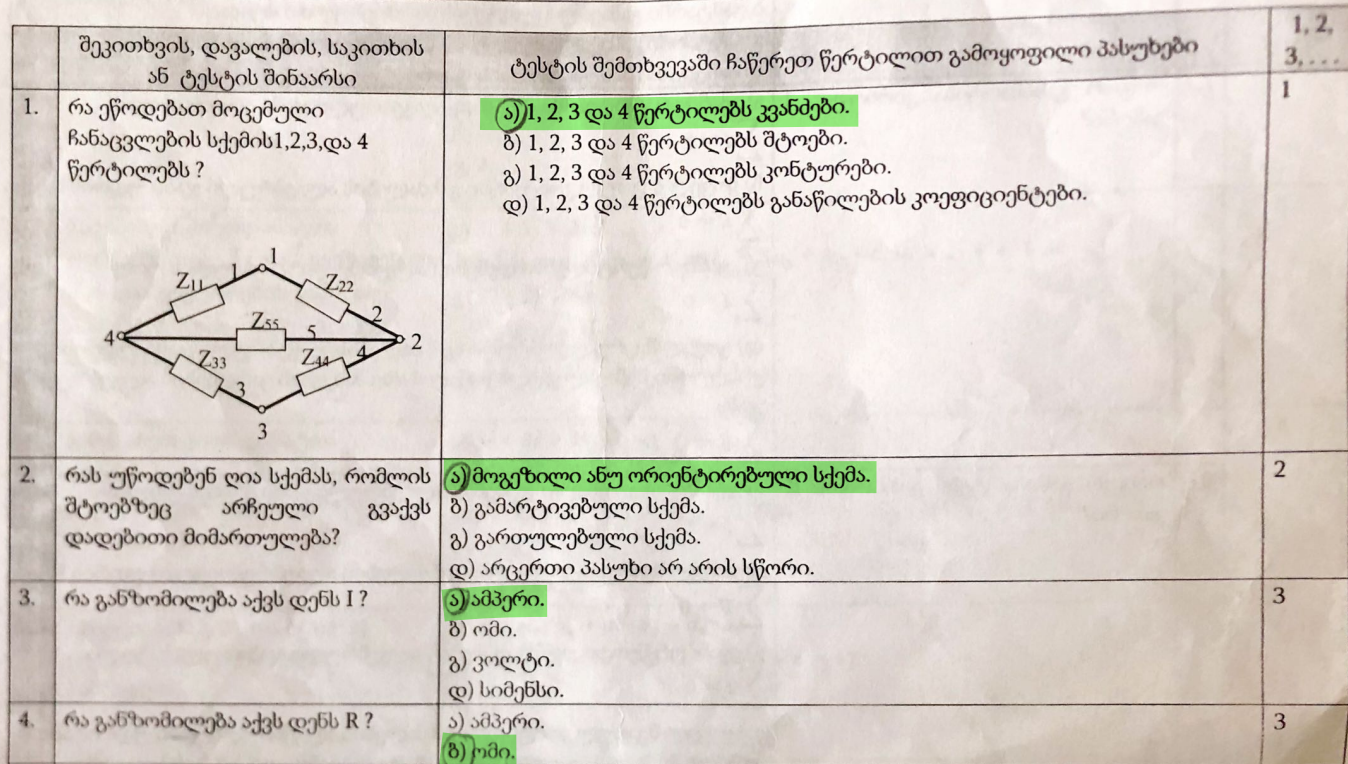 შეკითხვის, დავალების, საკითხის
ან ტესტის შინაარსი
ტესტის შემთხვევაში ჩაწერეთ წერტილით გამოყოფილი პასუხები
1, 2,
3, . . .
1.
რა ეწოდებათ მოცემული
ჩანაცვლების სქემის1,2,3,და 4
წერტილებს ?
ა) 1, 2, 3 და 4 წერტილებს კვანძები.
ბ) 1, 2, 3 და 4 წერტილებს შტოები.
გ) 1, 2, 3 და 4 წერტილებს კონტურები.
დ) 1, 2, 3 და 4 წერტილებს განაწილების კოეფიციენტები.
1
1
1
Z11
Z22
2
4
Z55
5
2
Z33
Z44
4
3
3
2.
რას უწოდებენ ღია სქემას, რომლის
შტოებზეც არჩეული გვაქვს
დადებითი მიმართულება?
ა) მოგეზილი ანუ ორიენტირებული სქემა.
ბ) გამარტივებული სქემა.
გ) გართულებული სქემა.
დ) არცერთი პასუხი არ არის სწორი.
2
3.
რა განზომილება აქვს დენს I ?
ა) ამპერი.
ბ) ომი.
გ) ვოლტი.
დ) სიმენსი.
3
4.
რა განზომილება აქვს დენს R ?
ა) ამპერი.
ბ) ომი.
3